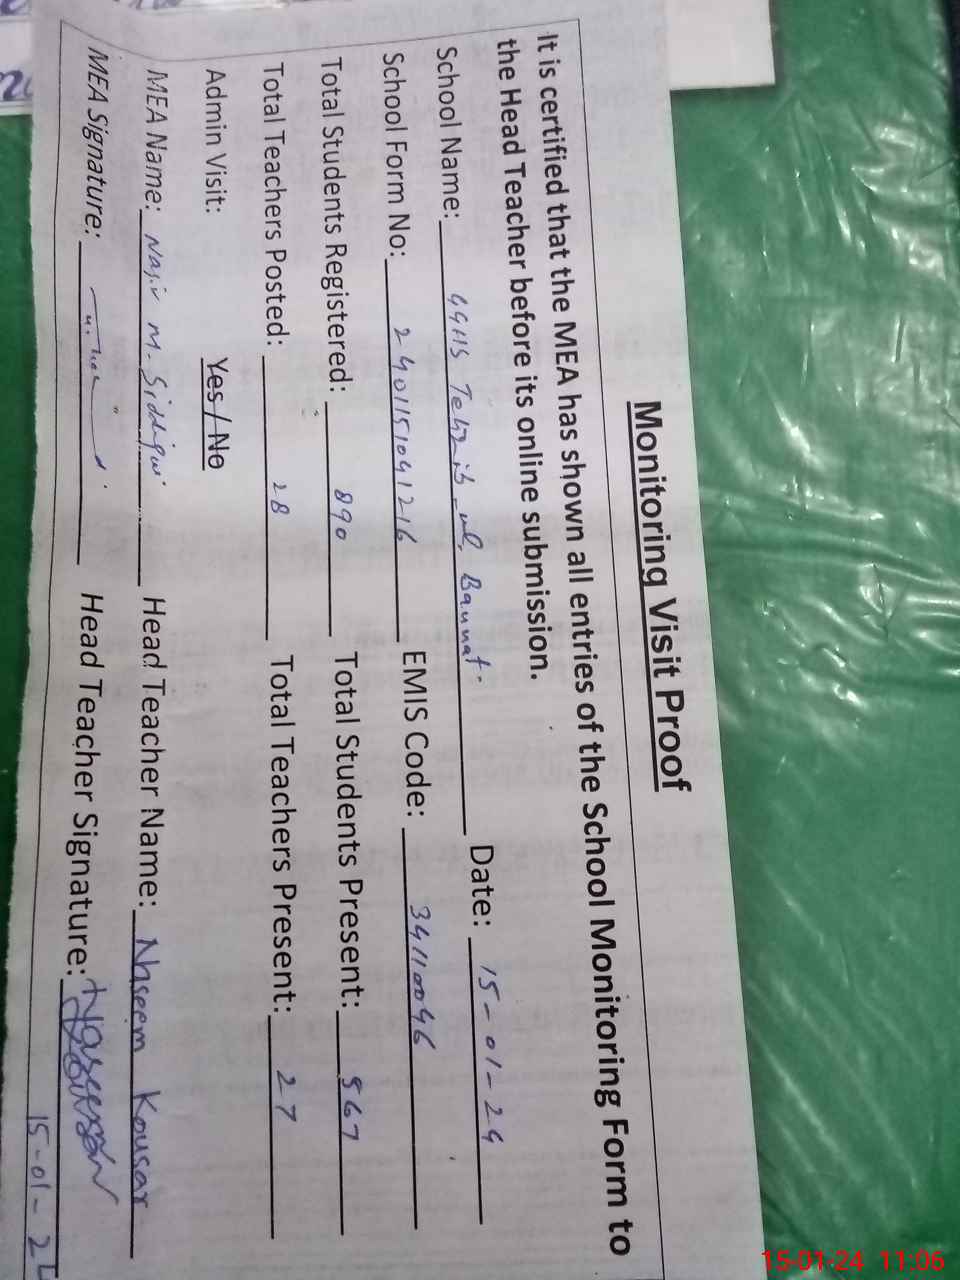 Monitoring Visit Proof
It is certified that the MEA has shown all entries of the School Monitoring Form to
the Head Teacher before its online submission.
School Name: GGHS Tehzib ul Bannat. Date: 15-01-24
School Form No: 2401151041216 EMIS Code: 34110046
Total Students Registered: 890 Total Students Present: 867
Total Teachers Posted: 28 Total Teachers Present: 27
Admin Visit: Yes / No
MEA Name: Nasir M. Siddiqui Head Teacher Name: Nhseem Kousar
MEA Signature: Head Teacher Signature:
15-01-2
15-01-24 11:06